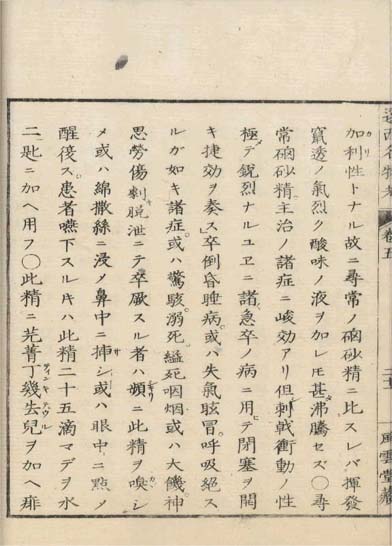 加利性トナル故ニ尋常ノ磠砂精ニ比スレバ揮發
竄透ノ氣烈ク酸味ノ液ヲ加レ𪜈甚沸騰セズ〇尋
常磠砂精主治ノ諸症ニ峻効アリ但刺戟衝動ノ性
極テ鋭烈ナルユヱニ諸急卒ノ病ニ用テ閉塞ヲ開
キ捷効ヲ奏ス卒倒昏睡病或ハ失氣眩冒呼吸絶ス
ルガ如キ諸症或ハ驚駭溺死縊死咽烟或ハ大饑神
思勞傷刺脱泄ニテ卒厥スル者ハ頻ニ此精ヲ嗅シ
メ或ハ綿撒絲ニ浸メ鼻中ニ挿シ或ハ眼中ニ點メ
醒復ス患者嚥下スルキハ此精二十五滴マデヲ水
二匙ニ加ヘ用フ〇此精ニ芫菁丁幾去兒ヲ加ヘ痱
卷五
風雲堂藏